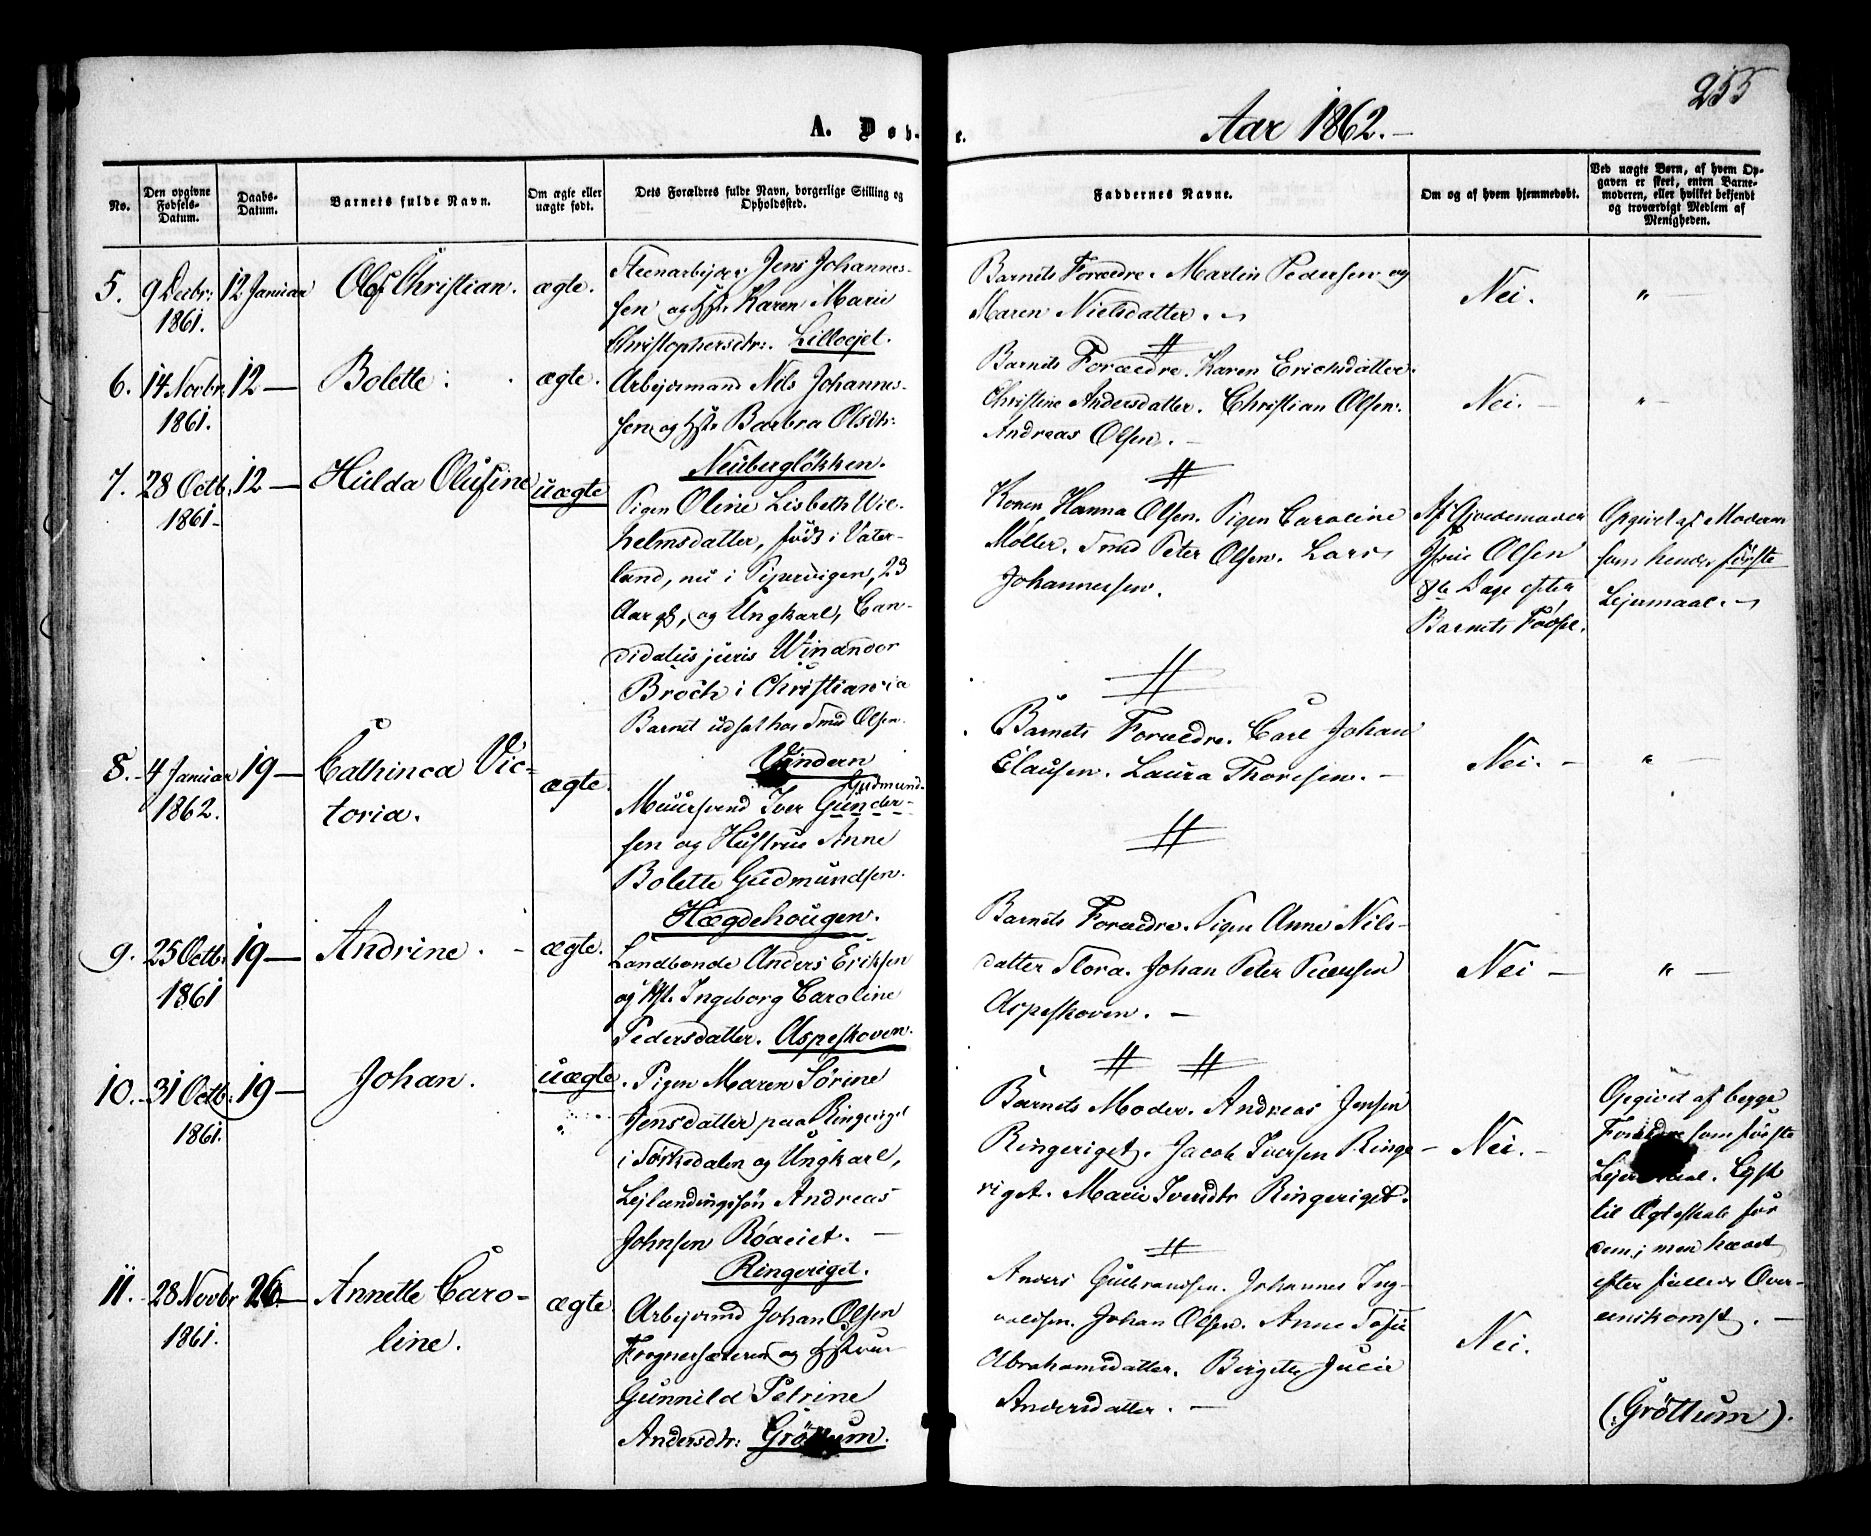 255
A. Døb-
e.
Aar 1862.-
No.
Den opgivne
Fødsels-
Datum.
Daabs-
Datum.
Barnets fulde Navn.
Om ægte eller
uægte født.
Dets Forældres fulde Navn, borgerlige Stilling og
Opholdssted.
Faddernes Navne.
Om og af hvem hjemmedøbt.
Ved uægte Børn, af hvem Op-
gaven er skeet, enten Barne-
moderen, eller hvilket bekjendt
og troværdigt Medlem af
Menigheden.
5. 9 Decbr: 12 Januar Olof Christian. ægte.
1861.
Steenarbejder Jens Johannes-
sen og Hst. Karen Marie
Christophersdtr: Lilloejet.
Barnets Forældre. Martin Pedersen og
Maren Nielsdatter.
Nei. "
6. 14 Novbr. 12 — Bolette. ægte.
1861.
Arbejdsmand Nils Johannes-
sen og Hst. Barbra Olsdtr:
Neübergløkken.
Barnets Forældre. Karen Ericksdatter.
Christine Andersdatter. Christian Olsen.
Andreas Olsen. -
Nei. - "
7. 28 Octb. 12 — Hülda Olüsine uægte
1861-
Pigen Oline Lisbeth Wil-
helmsdatter, født i Vater-
land, nu i Pipervigen, 23
Aar gl, og Ungkarl, Can-
didatus juris Winandor
Broch i Christiania
Barnet udsat hos Smed Olsen.
Vindern
Konen Hanna Olsen. Pigen Caroline
Møller. Smed Peter Olsen. Lars
Johannessen.
Af Gjordemoder
Olsen
8te Dage efter
Barnets Fødsel.
Opgivet af Moderen
som hendes første
Lejermaal.
8. 4 Januar 19 — Cathinca Vic-
1862. toria. ægte.
Gudmund-
Muursvend Iver Gunder-
sen og Hustrue Anne
Bolette Gudmundsen.
Hægdehougen.
Barnets Forældre. Carl Johan
Clausen. Laura Thoresen. -
Nei. - "
9. 25 Octb. 19 — Andrine. - ægte.
1861
Landbonde Anders Eriksen
og Hst. Ingeborg Caroline
Pedersdatter. Aspeskoven.
Barnets Forældre. Pigen Anne Nils-
datter Flora. Johan Peter
Aspeskoven. -
Nei - "
10. 31 Octb. 19 — Johan. uægte.
1861.
Pigen Maren Sørine
Jensdatter paa Ringeriget
i Sørkedalen og Ungkarl,
Lejlændingssøn Andreas
Johnsen
Ringeriget.
Barnets Moder. Andreas Jensen
Ringeriget. Jacob Iversen Ringe-
riget. Marie Iversdtr Ringeriget.
Nei. -
Opgivet af begge
Forældre som første
Lejermaal. Lyst
til Ægteskab for
dem; men hævet
efter fælleds Over-
eenskomst. -
11. 28 Novbr 26 — Annette Caro-
1861. line. ægte
Arbejdsmd Johan Olsen
Frognersæteren og Hstrue
Gunnild Petrine
Andersdtr: Grøttum.
Anders Gulbrandsen. Johannes Ing-
valdsen. Johan Olsen. Anne Sofie
Abrahamsdatter. Birgitte Julie
Andersdatter. -
Nei.
(Grøttum).